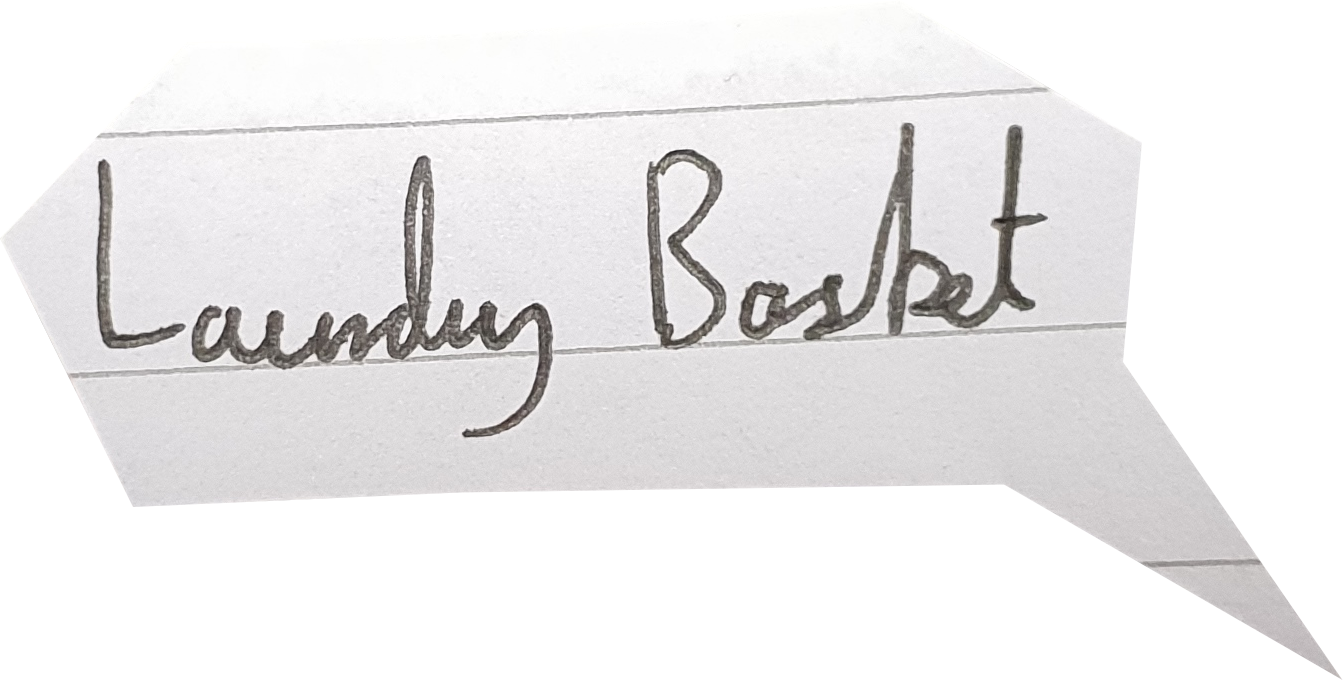 Laundry Basket